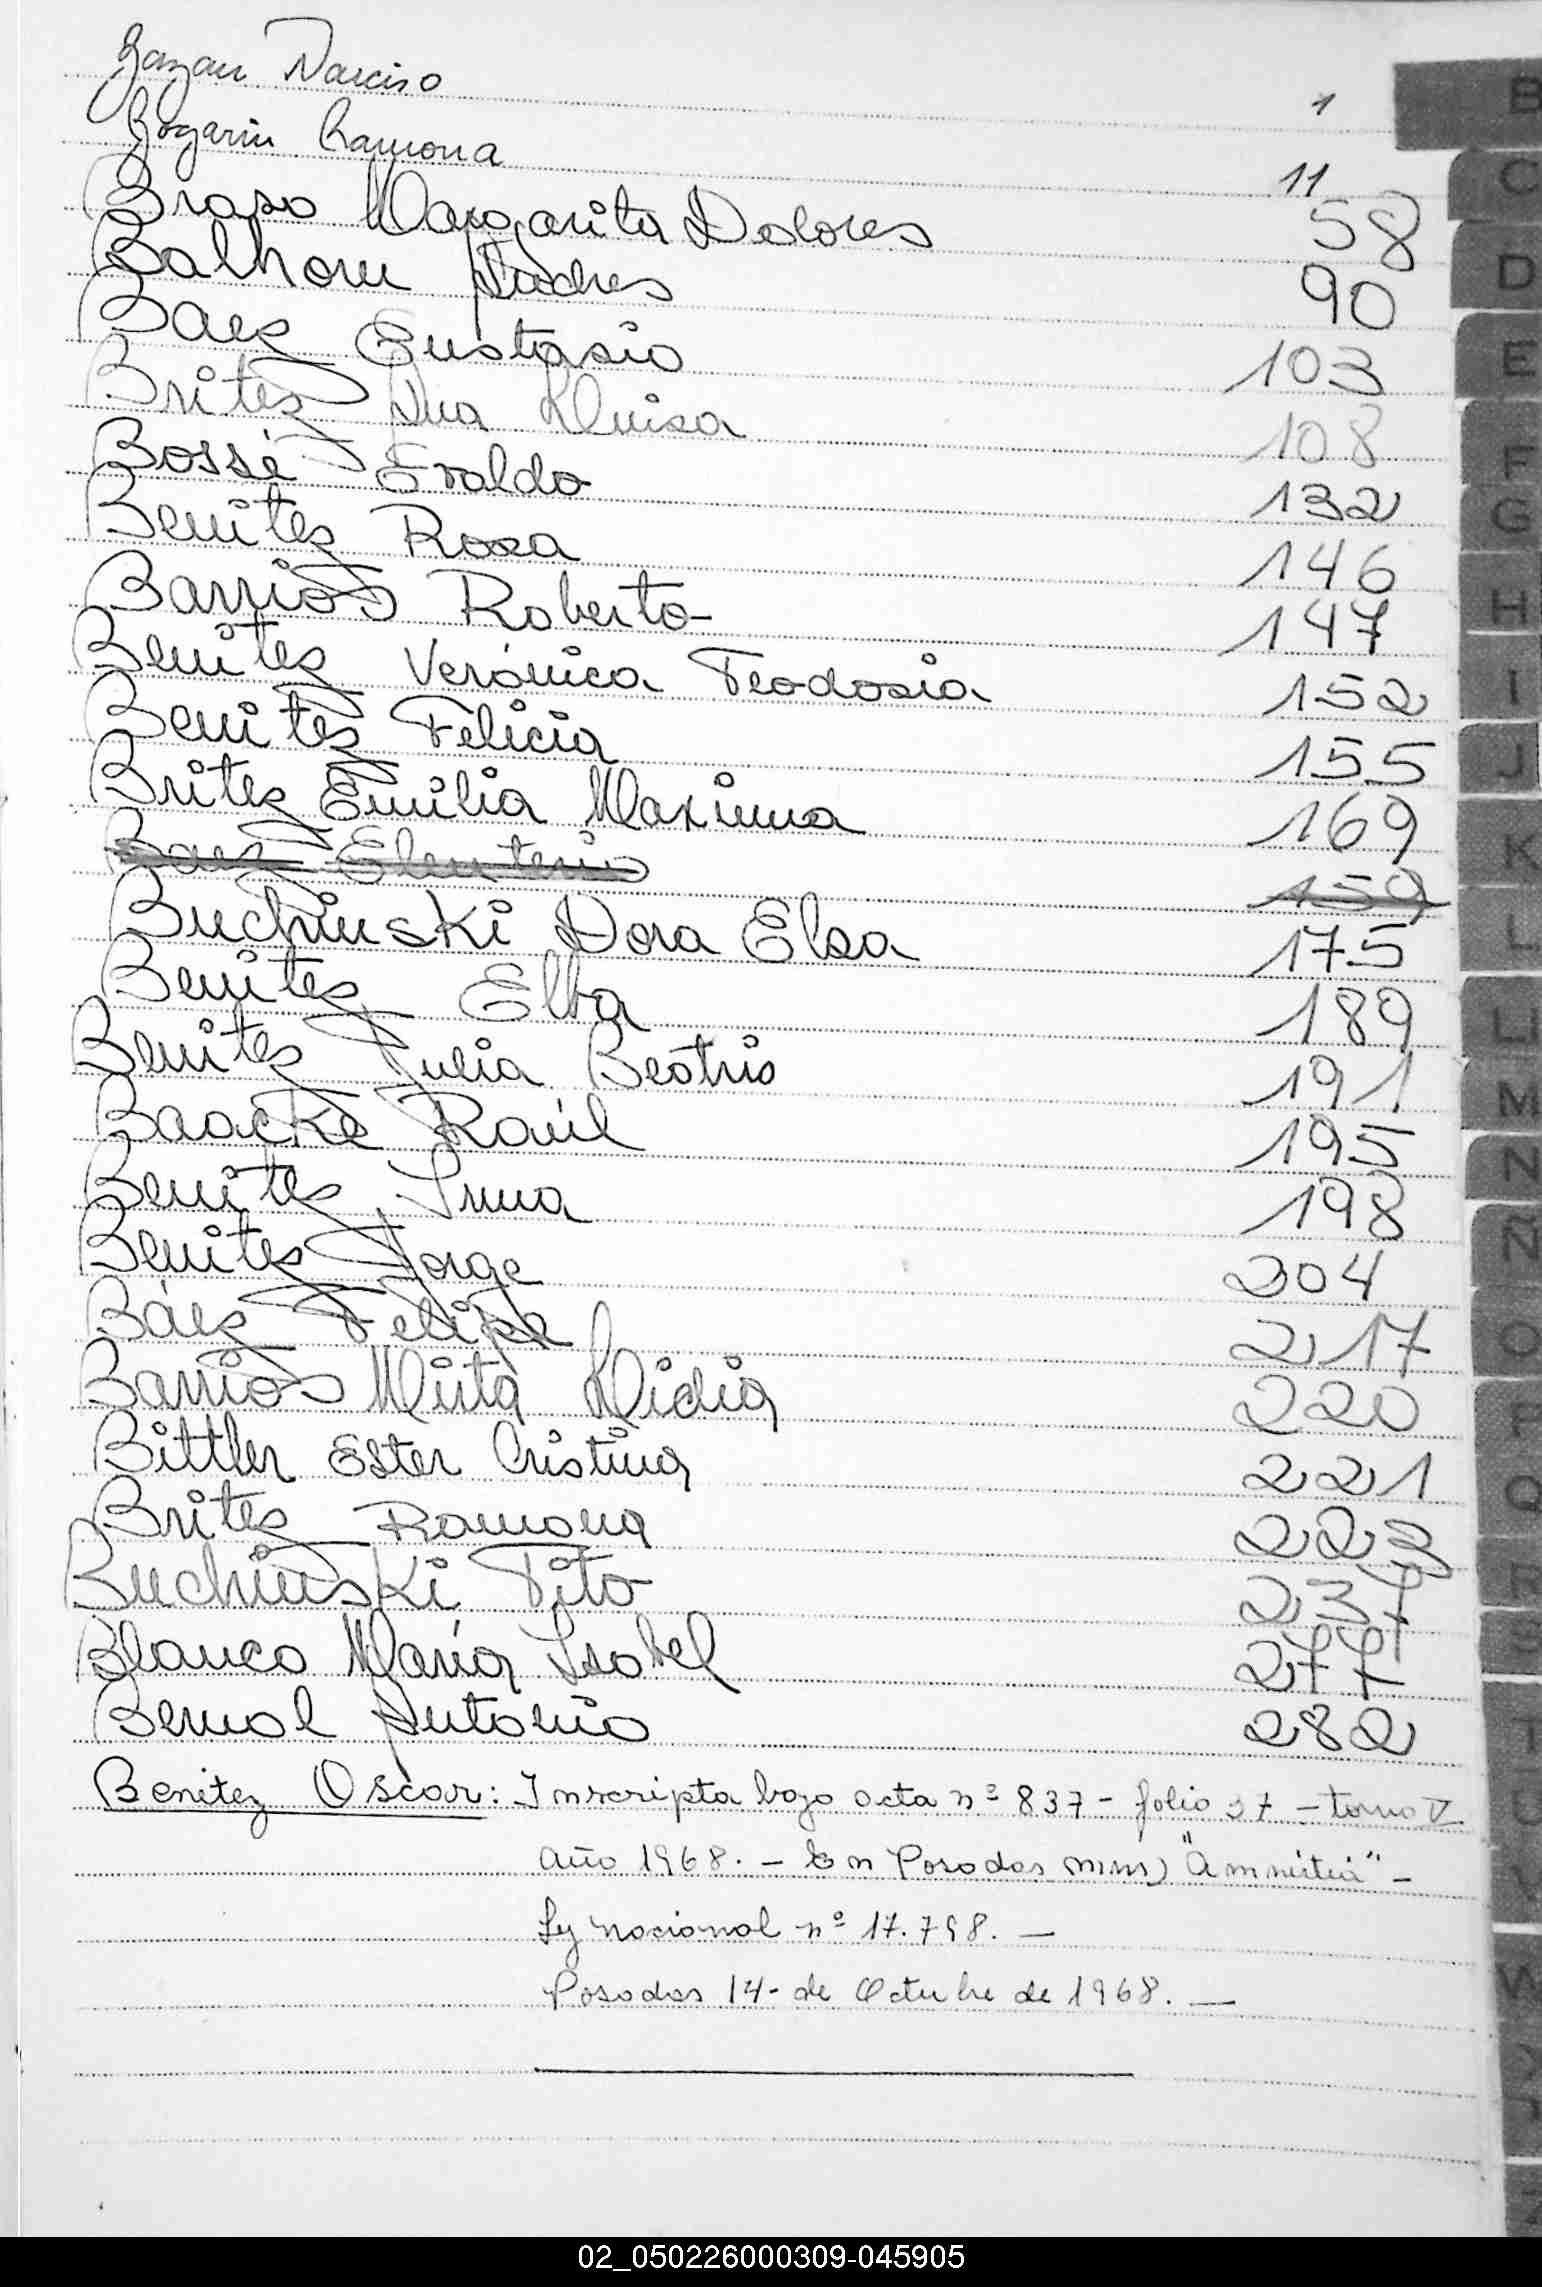 Bazan Narciso 1
Bogarin Ramona 11
Braso Margarita Dolores 58
Balhom Andres 90
Baez Eustasio 103
Britez Ana Luisa 108
Bossé Evaldo 132
Benitez Rosa 146
Barrios Roberto 147
Benitez Verónica Teodosia 152
Benitez Felicia 155
Britez Emilia Maxima 169
Baez Eleuterio 159
Buchinski Dora Elsa 175
Benitez Elba 189
Benitez Julia Beatris 191
Baacke Raúl 195
Benitez Irma 198
Benitez Jorge 204
Báez Felipe 217
Barrios Mirta Lidia 220
Bittler Ester Cristina 221
Britez Ramona 223
Buchinski Tito 237
Blanco María Isabel 277
Bernal Antonio 282
Benitez Oscar: Inscripta bajo acta nº 837 - folio 37 - tomo V
año 1968. - En Posadas mns) "Amnistia" -
Ley nacional nº 17.798. -
Posadas 14 - de Octubre de 1968. -
B
C
D
E
F
G
H
I
J
K
L
Ll
M
N
Ñ
O
P
Q
R
S
T
U
V
W
02_050226000309-045905